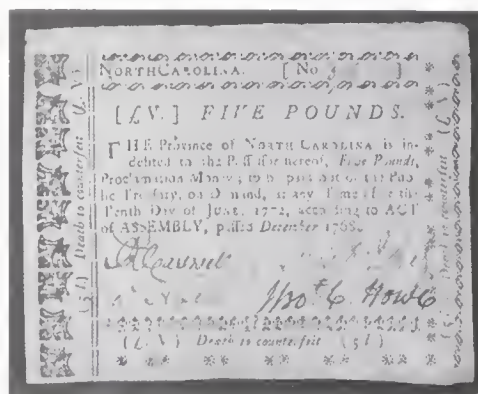 NORTH CAROLINA. [ No ]
[ £V. ] FIVE POUNDS.
THE Province of NORTH CAROLINA is in-
debted to the Possessor hereof, Five Pounds,
Proclamation Money; to be paid out of the Pub-
lic Treasury, on Demand, at any Time after the
Tenth Day of JUNE, 1772, according to ACT
of ASSEMBLY, passed December 1768.
R Caswell
Jno
Thos C. Howe
(£. V) Death to counterfeit (5 l)
(5 l) Death to counterfeit (£. V)
(5 l) Death to counterfeit (£ V)